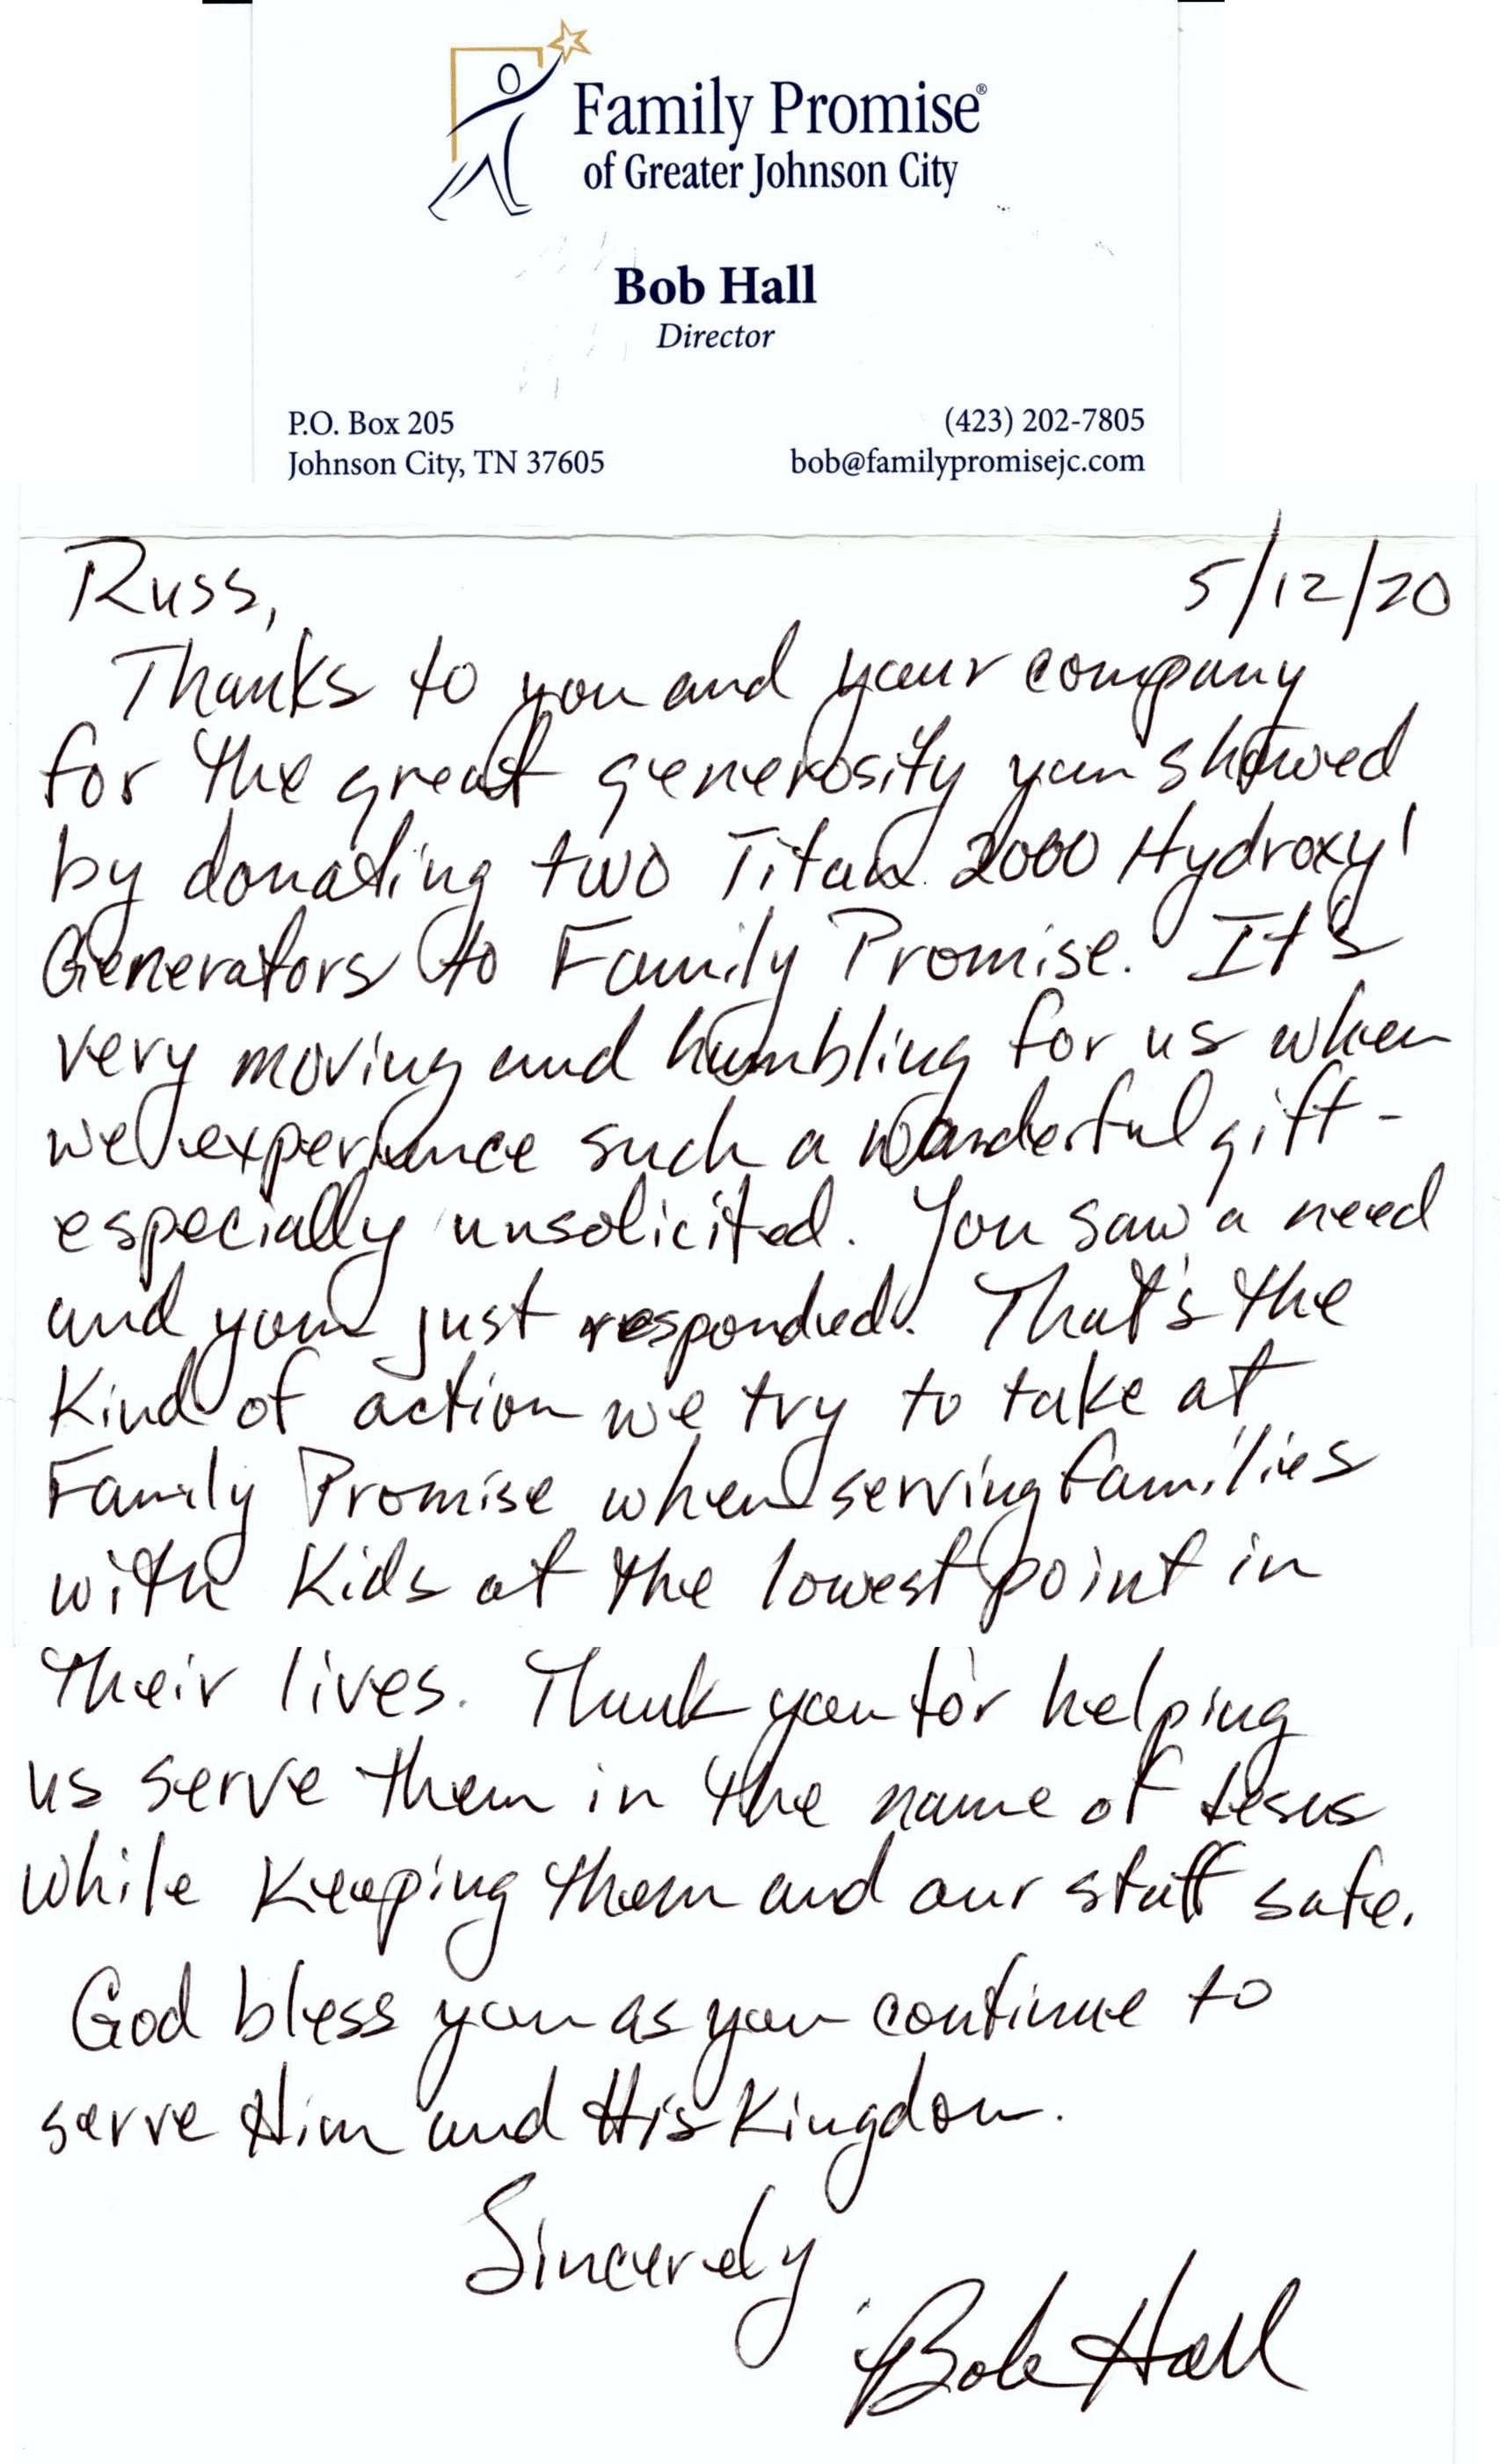 Family Promise®
of Greater Johnson City
Bob Hall
Director
P.O. Box 205
(423) 202-7805
Johnson City, TN 37605
bob@familypromisejc.com
Russ,
5/12/20
Thanks to you and your company
for the great generosity you showed
by donating two Titan 2000 Hydroxyl
Generators to Family Promise. It's
very moving and humbling for us when
we experience such a wonderful gift -
especially unsolicited. You saw a need
and you just responded. That's the
kind of action we try to take at
Family Promise when serving families
with kids at the lowest point in
their lives. Thank you for helping
us serve them in the name of Jesus
while keeping them and our staff safe.
God bless you as you continue to
serve Him and His kingdom.
Sincerely
Bob Hall